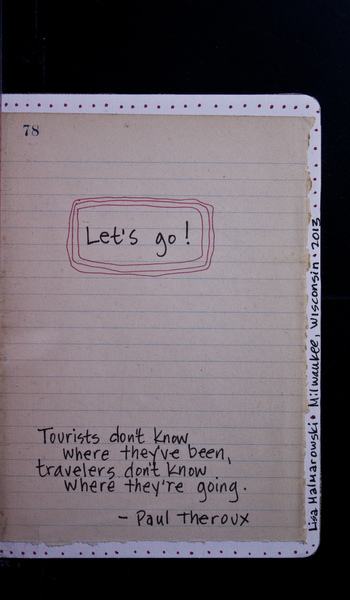 78
Let's go!
Tourists don't know
where they've been,
travelers don't know
where they're going.
- Paul Theroux
Lisa Halmarowski • Milwaukee, Wisconsin • 2013